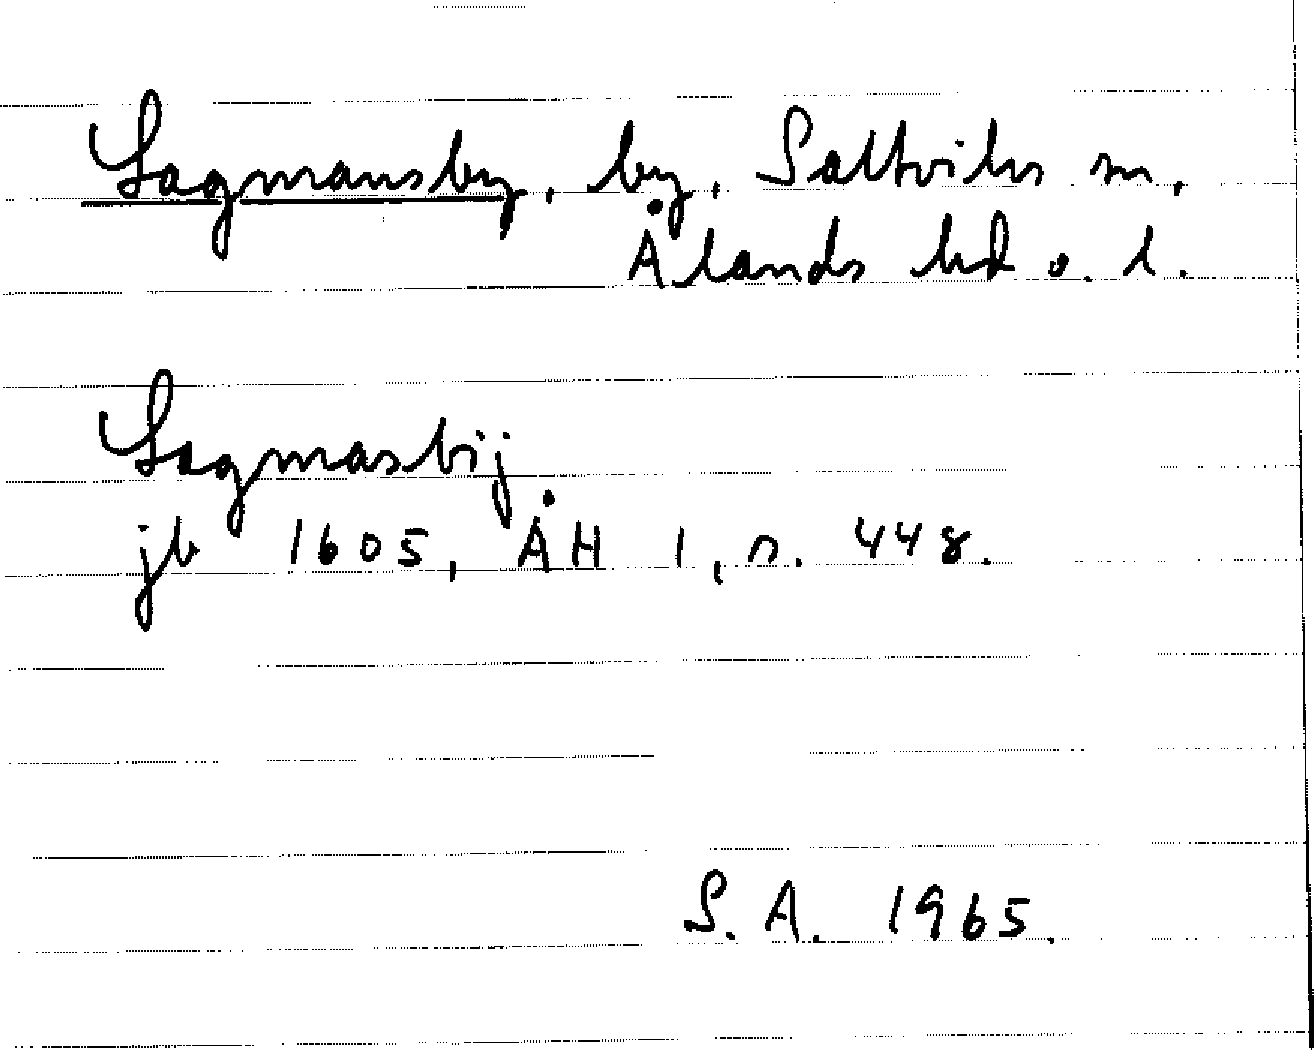 Lagmansby, by, Saltviks sn,
Ålands hd o. l.
Lagmasbij
jb 1605, ÅH 1, s. 448.
S. A. 1965.